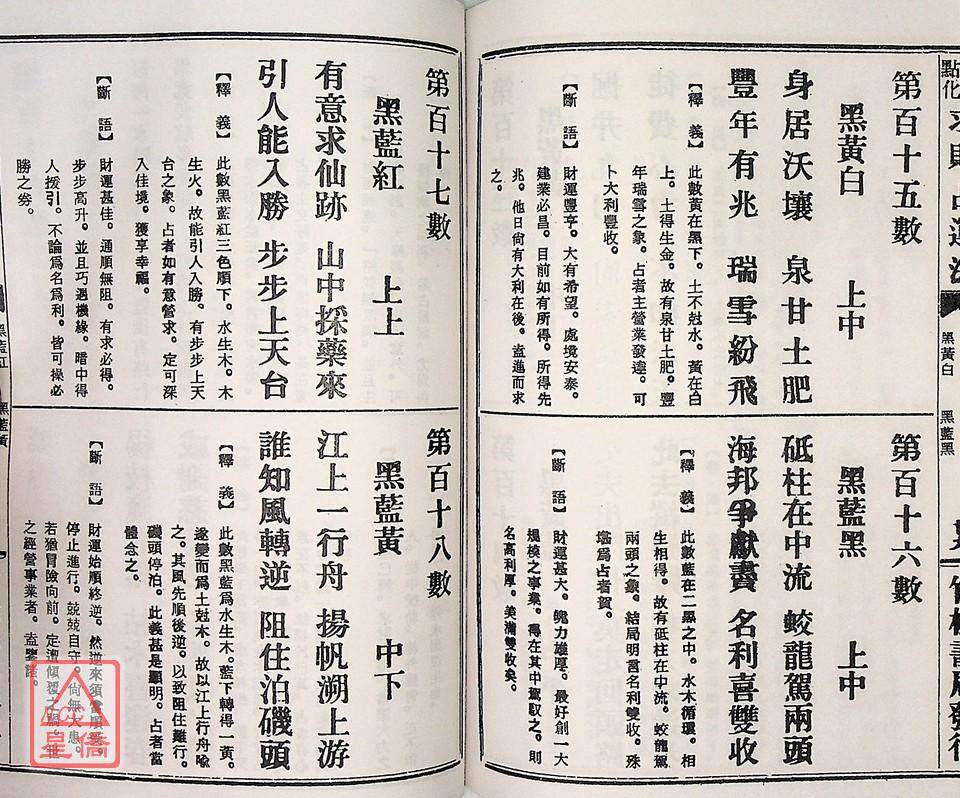 點化求財占運法
黑黃白
黑藍黑
第百十五數
黑黃白　上中
身居沃壤　泉甘土肥
豐年有兆　瑞雪紛飛
【釋義】此數黃在黑下。土不尅水。黃在白
上。土得生金。故有泉甘土肥。豐
年瑞雪之象。占者主營業發達。可
卜大利豐收。
【斷語】財運豐亨。大有希望。處境安泰。
建業必昌。目前如有所得。所得先
兆。他日尙有大利在後。盍進而求
之。
第百十六數
黑藍黑　上中
砥柱在中流　蛟龍駕兩頭
海邦爭獻書　名利喜雙收
【釋義】此數藍在二黑之中。水木循環。相
生相得。故有砥柱在中流。蛟龍駕
兩頭之象。結局明言名利雙收。殊
堪爲占者賀。
【斷語】財運甚大。魄力雄厚。最好創一大
規模之事業。得在其中駕馭之。則
名高利厚。美滿雙收矣。
第百十七數
黑藍紅　上上
有意求仙跡　山中採藥來
引人能入勝　步步上天台
【釋義】此數黑藍紅三色順下。水生木。木
生火。故能引人入勝。有步步上天
台之象。占者如有意營求。定可深
入佳境。獲享幸福。
【斷語】財運甚佳。通順無阻。有求必得。
步步高升。並且巧遇機緣。暗中得
人援引。不論爲名爲利。皆可操必
勝之券。
第百十八數
黑藍黃　中下
江上一行舟　揚帆溯上游
誰知風轉逆　阻住泊磯頭
【釋義】此數黑藍爲水生木。藍下轉得一黃。
遂變而爲土尅木。故以江上行舟喩
之。其風先順後逆。以致阻住難行。
磯頭停泊。此義甚是顯明。占者當
體念之。
【斷語】財運始順終逆。然逆來須當順受。
停止進行。兢兢自守。尙無大患。
若猶冒險向前。定遭傾覆之
之經營事業者。盍鑒諸。
黑藍紅
黑藍黃
皇僑